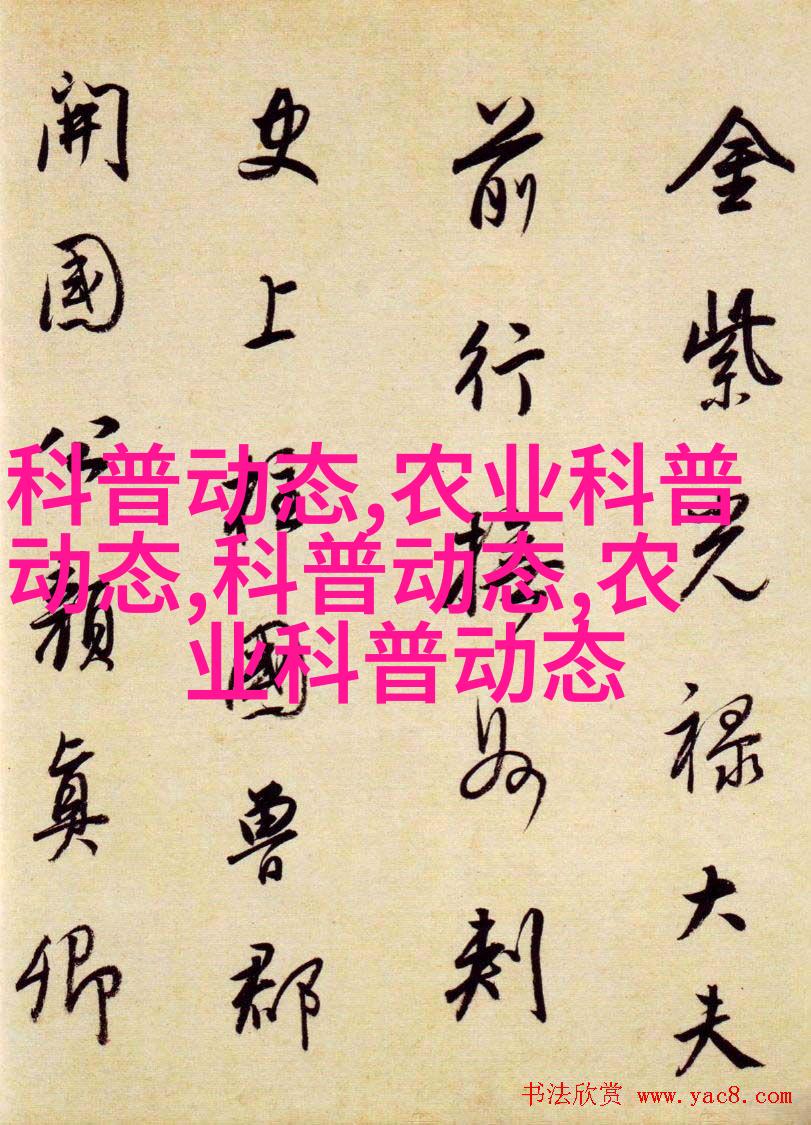 金紫光禄大夫
前行撫州刺
史上柱國魯郡
開國公顏真卿
科普动态,农业科普
动态,科普动态,农
业科普动态
书法欣赏 www.yac8.com